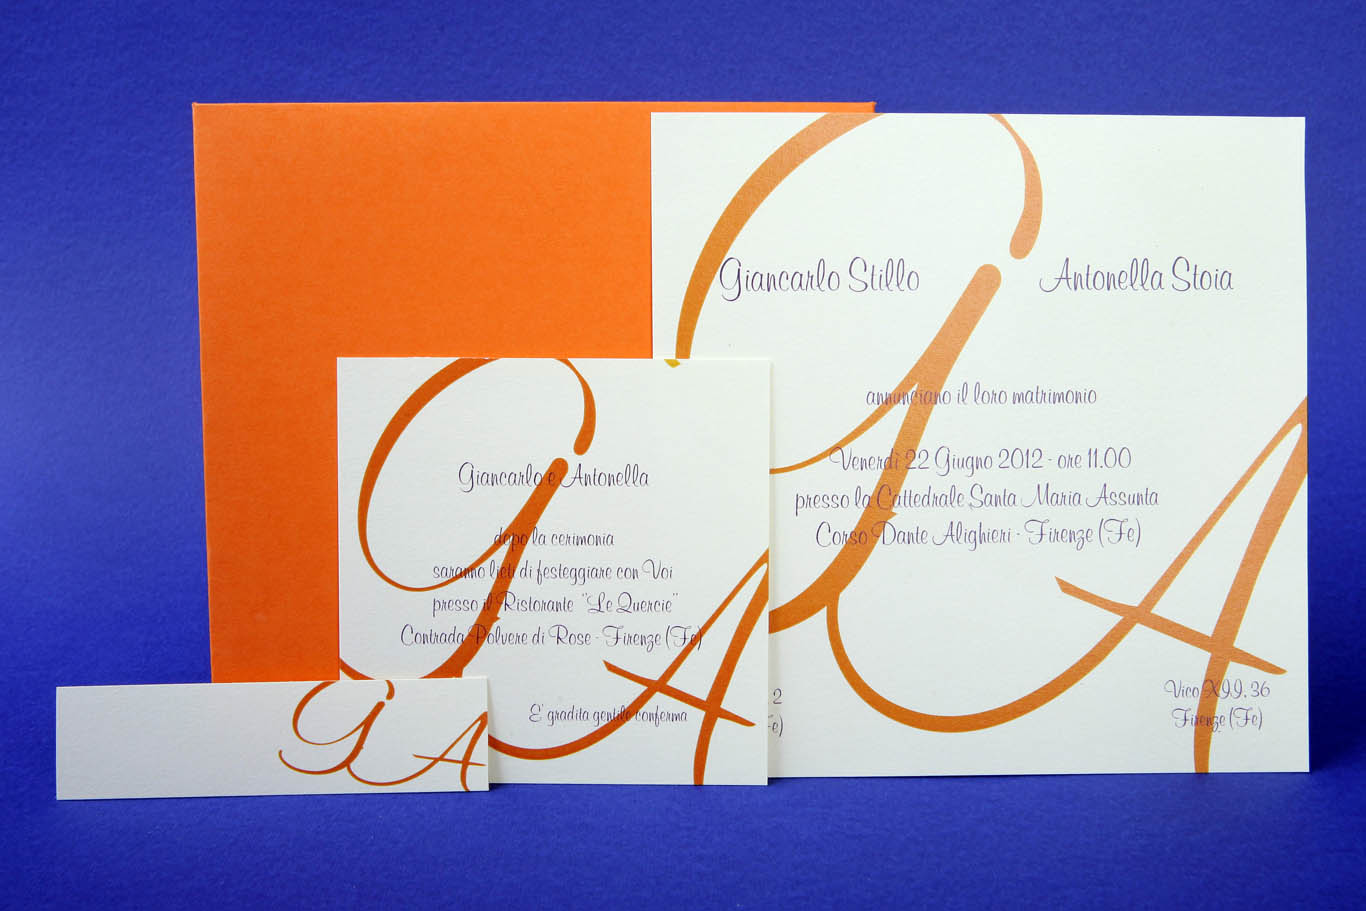 Giancarlo Stillo
Antonella Stoia
annunciano il loro matrimonio
Venerdì 22 Giugno 2012 - ore 11.00
presso la Cattedrale Santa Maria Assunta
Corso Dante Alighieri - Firenze (Fe)
Vico XII, 36
Firenze (Fe)
2
e)
G A
Giancarlo e Antonella
dopo la cerimonia
saranno lieti di festeggiare con Voi
presso il Ristorante "Le Quercie"
Contrada Polvere di Rose - Firenze (Fe)
E' gradita gentile conferma
G A
G A